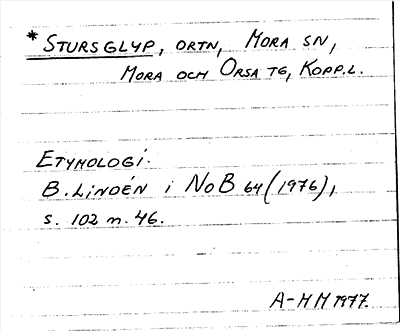 * STURSGLYP, ORTN, MORA SN,
MORA OCH ORSA TG, KOPP.L.
ETYMOLOGI:
B. LINDÉN i NoB 64 (1976),
s. 102 n. 46.
A-HM 1977.